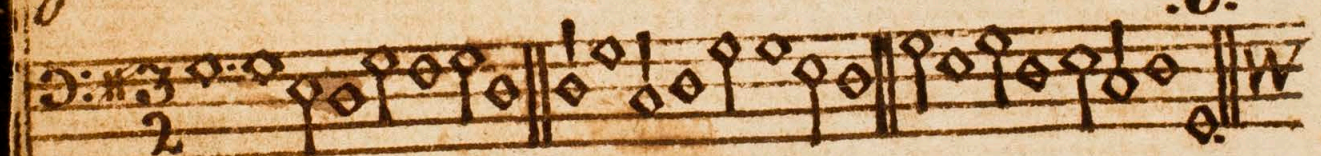 3
2
W